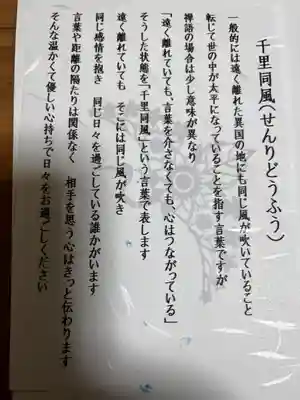 千里同風〈せんりどうふう〉
一般的には遠く離れた異国の地にも同じ風が吹いていること
転じて世の中が太平になっていることを指す言葉ですが
禅語の場合は少し意味が異なり
「遠く離れていても、言葉を介さなくても、心はつながっている」
そうした状態を「千里同風」という言葉で表します
遠く離れていても　そこには同じ風が吹き
同じ感情を抱き　同じ日々を過ごしている誰かがいます
言葉や距離の隔たりは関係なく　相手を思う心はきっと伝わります
そんな温かくて優しい心持ちで日々をお過ごしください